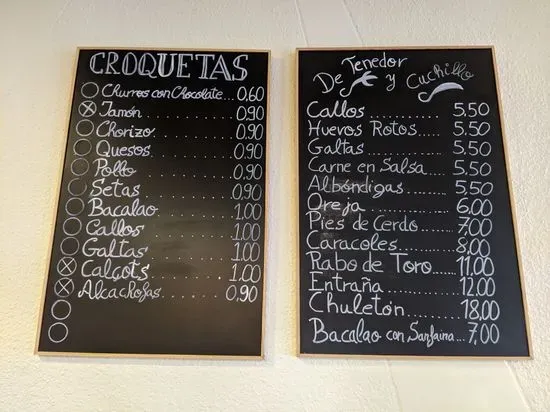 CROQUETAS
Churros con Chocolate... 0,60
Jamón.......... 0,90
Chorizo.......... 0,90
Quesos.......... 0,90
Pollo.......... 0,90
Setas.......... 0,90
Bacalao.......... 1,00
Callos.......... 1,00
Galtas.......... 1,00
Calçots.......... 1,00
Alcachofas.......... 0,90
De Tenedor y Cuchillo
Callos.......... 5,50
Huevos Rotos....... 5,50
Galtas.......... 5,50
Carne en Salsa..... 5,50
Albóndigas........ 5,50
Oreja.......... 6,00
Pies de Cerdo...... 7,00
Caracoles........ 8,00
Rabo de Toro..... 11,00
Entraña.......... 12,00
Chuletón......... 18,00
Bacalao con Sanfaina... 7,00